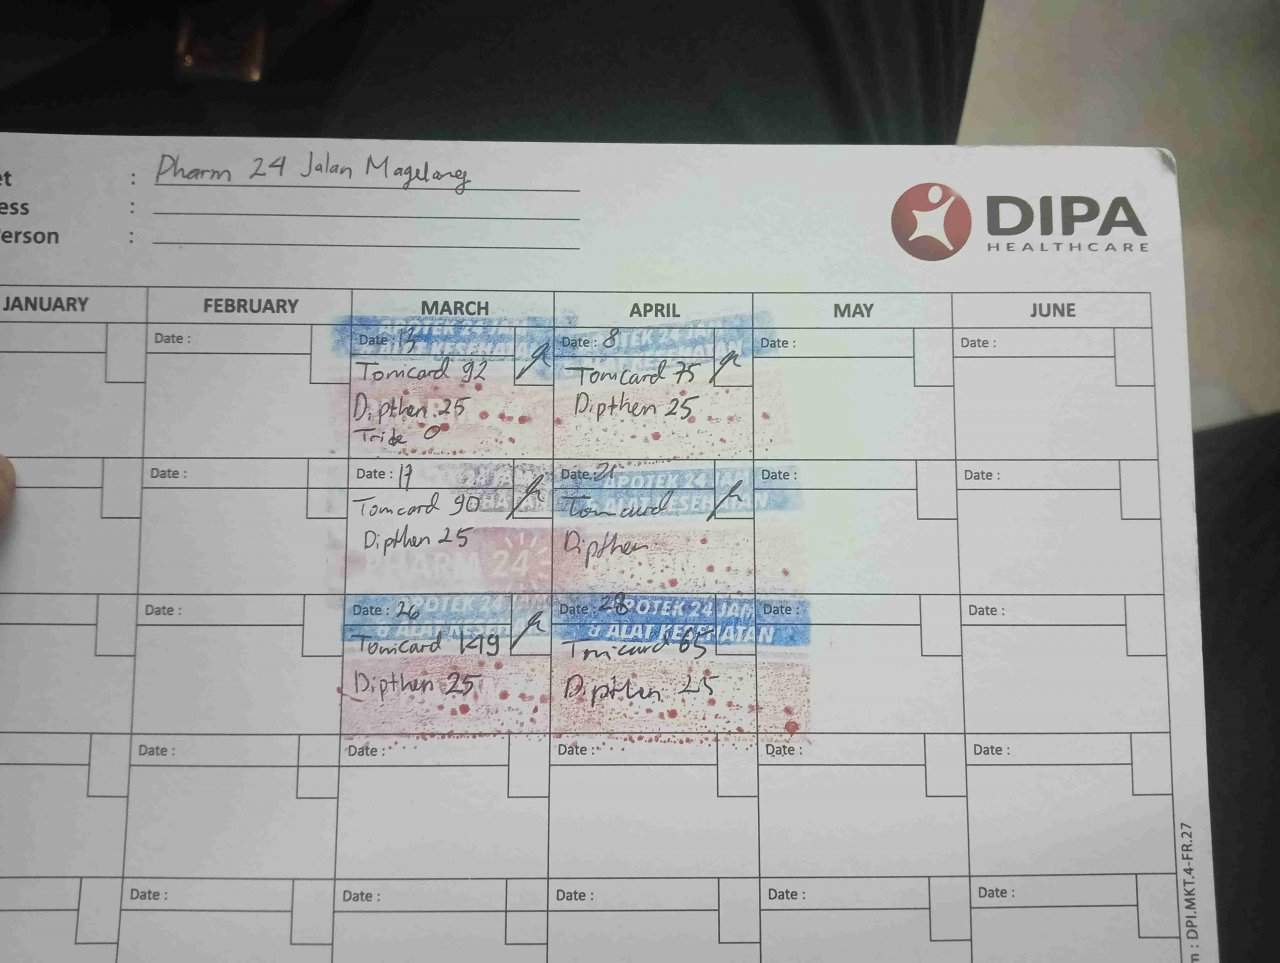 et : Pharm 24 Jalan Magelang
ess :
erson :
DIPA
HEALTHCARE
JANUARY FEBRUARY MARCH APRIL MAY JUNE
APOTEK 24 JAM
& ALAT KESEHATAN
Date : Date : 13 Date : 8 Date : Date :
Tomcard 92 Tomcard 75
Dipthen 25 Dipthen 25
0
Date : Date : 17 Date : 21 Date : Date :
APOTEK 24 JAM
& ALAT KESEHATAN
Tomcard 90 Tomcard
Dipthen 25 Dipthen
PHARM 24
Date : Date : 26 Date : 28 Date : Date :
APOTEK 24 APOTEK 24 JAM
& ALAT KESEH & ALAT KESEHATAN
Tomcard 149 Tomcard 65
Dipthen 25 Dipthen 25
Date : Date : Date : Date : Date :
Date : Date : Date : Date : Date :
m : DPI.MKT.4-FR.27